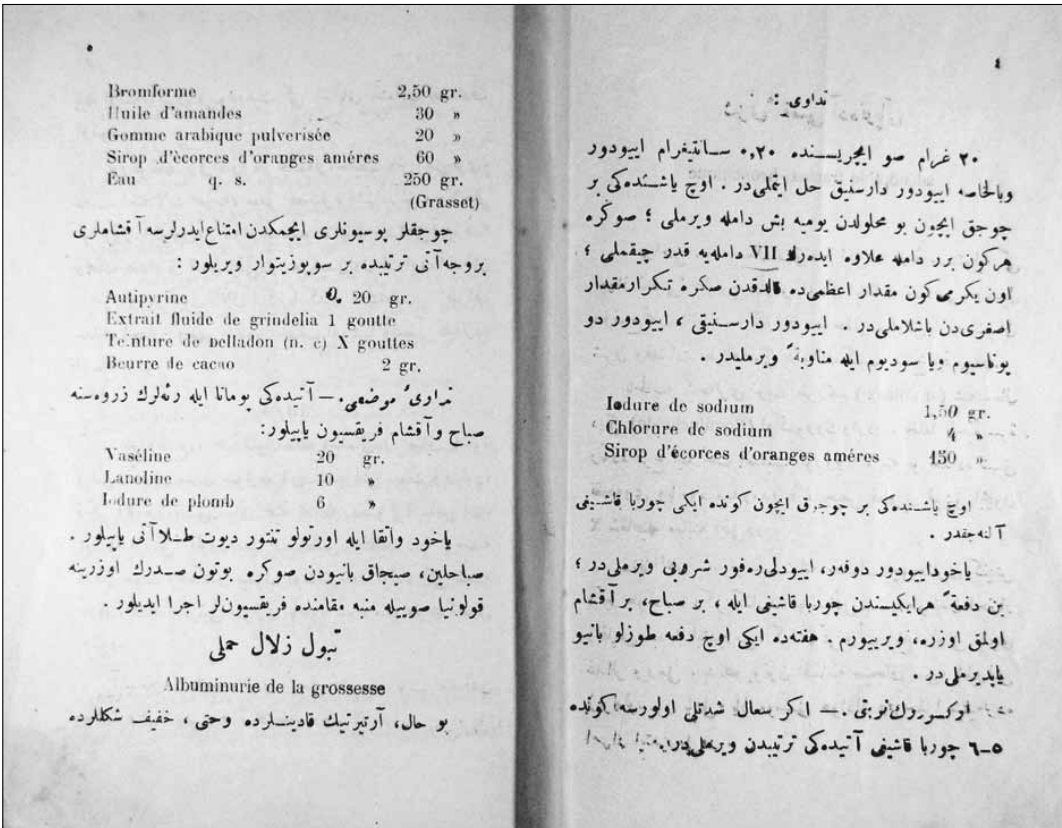 ٤
تداوی :
٢٠ غرام صو ایچریسنده ٠,٢٠ سانتیغرام ایودور
وبالخاصه ایودور دارسنیق حل ایتملی‌در . اوچ یاشنده‌کی بر
چوجق ایچون بو محلولدن یومیه بش دامله ویرملی ؛ صوکره
هرکون برر دامله علاوه ایده‌رك VII دامله‌یه قدر چیقملی ؛
اون یکرمی کون مقدار اعظمی‌ده قالدقدن صکره تکرار مقدار
اصغری‌دن باشلاملی‌در . ایودور دارسنیق ، ایودور دو
پوتاسیوم ویا سودیوم ایله مناوبةً ویرملیدر .
Iodure de sodium 1,50 gr.
Chlorure de sodium 4 »
Sirop d'écorces d'oranges améres 150 »
اوچ یاشنده‌کی بر چوجق ایچون کونده ایکی چوربا قاشیغی
آلنه‌جقدر .
یاخود ایودور دوفەر، ایودلی رەفور شروبی ویرملی‌در ؛
بن دفعةً هر ایکیسندن چوربا قاشیغی ایله ، بر صباح، بر آقشام
اولمق اوزره، ویرییورم . هفته‌ده ایکی اوچ دفعه طوزلو بانیو
یاپدیرملی‌در .
اوکسوروك نوبتی . — اکر سعال شدتلی اولورسه کونده
٥-٦ چوربا قاشیغی آتیده‌کی ترتیبدن ویرملی‌در .
٥
Bromforme 2,50 gr.
Huile d'amandes 30 »
Gomme arabique pulverisée 20 »
Sirop d'écorces d'oranges améres 60 »
Eau q. s. 250 gr.
(Grasset)
چوجقلر پوسیونلری ایچمکدن امتناع ایدرلرسه آقشاملری
بروجه آتی ترتیبده بر سوپوزیتوار ویریلور :
Antipyrine 0. 20 gr.
Extrait fluide de grindelia 1 goutte
Teinture de belladon (n. c) X gouttes
Beurre de cacao 2 gr.
تداوئ موضعی . — آتیده‌کی پومانا ایله رئه‌لرك زروه‌سنه
صباح وآقشام فریقسیون یاپیلور:
Vaséline 20 gr.
Lanoline 10 »
Iodure de plomb 6 »
یاخود واتقا ایله اورتولو تنتور دیوت طلاآتی یاپیلور .
صباحلین، صیجاق بانیودن صوکره بوتون صدرك اوزرینه
قولونیا صوییله منبه مقامنده فریقسیون‌لر اجرا ایدیلور .
تبول زلال حملی
Albuminurie de la grossesse
بو حال، آرتیرتیك قادینلرده وحتی ، خفیف شکللرده